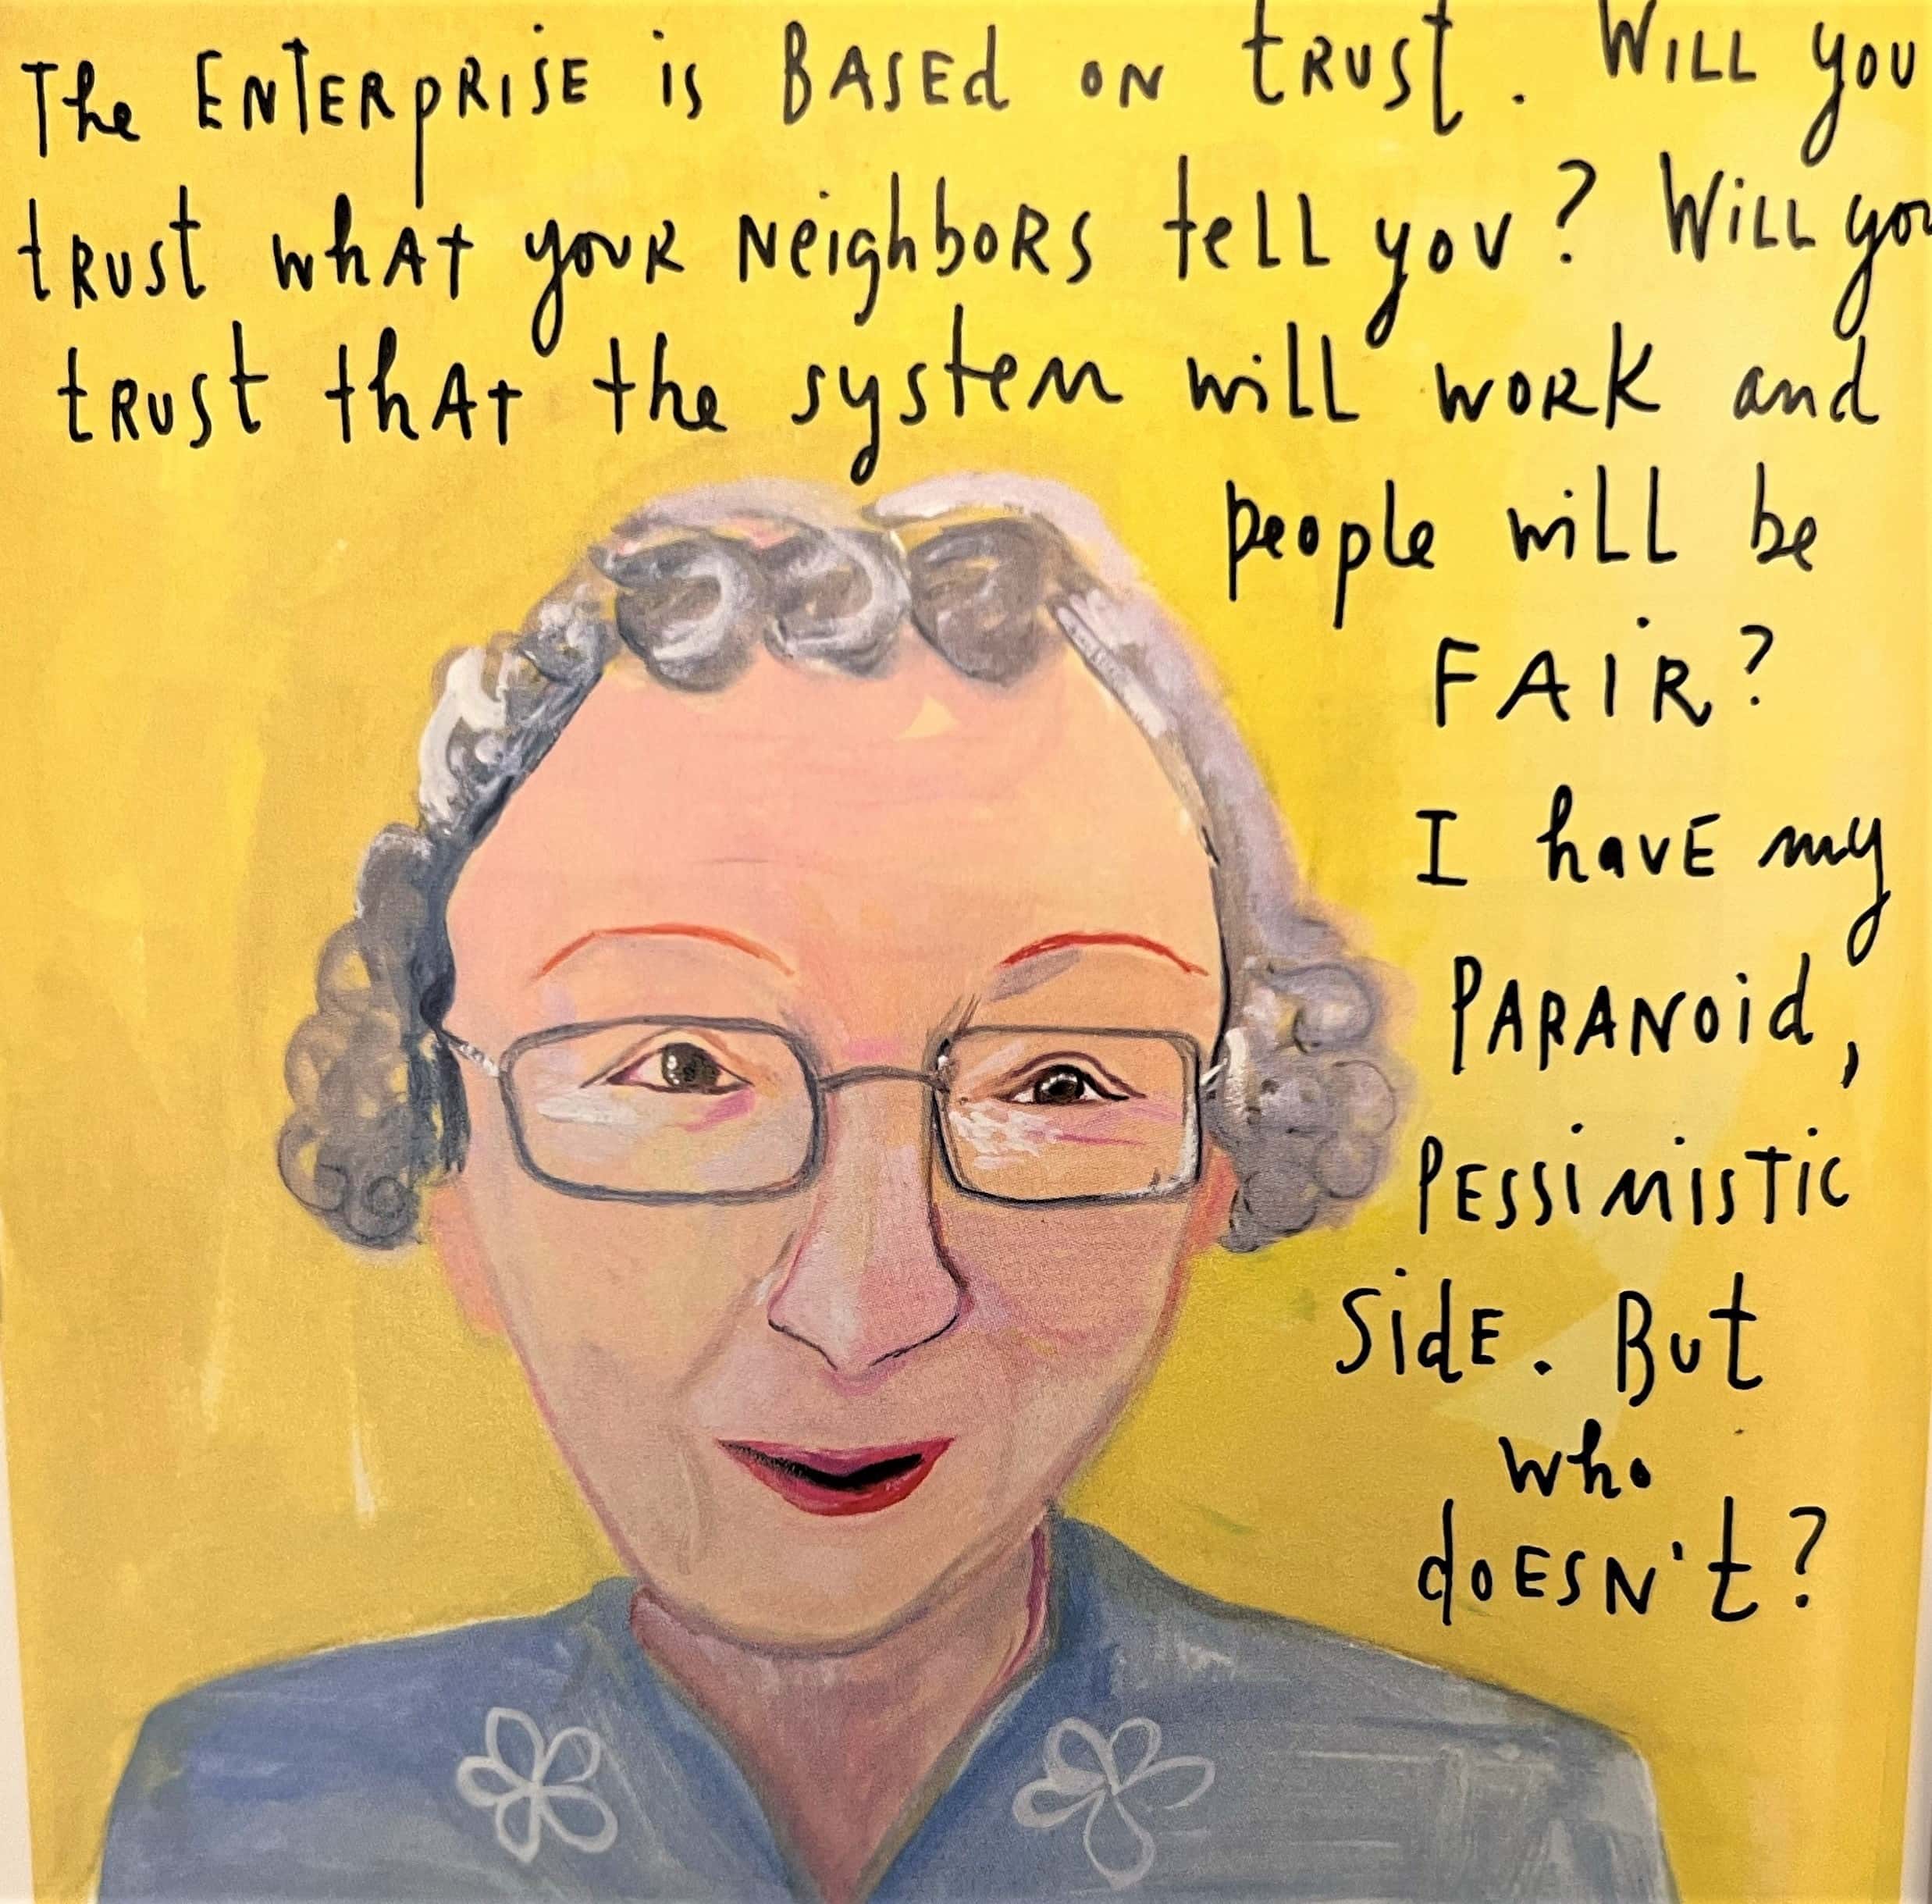 The ENTERPRISE is BASEd ON tRUSt. WiLL you
tRUSt whAt youR NeighboRS tell you? WiLL you
tRUSt thAt the system will woRK and
people will be
FAIR?
I havE my
PARANoid,
PESSiMiSTiC
SidE. But
who
doESN't?